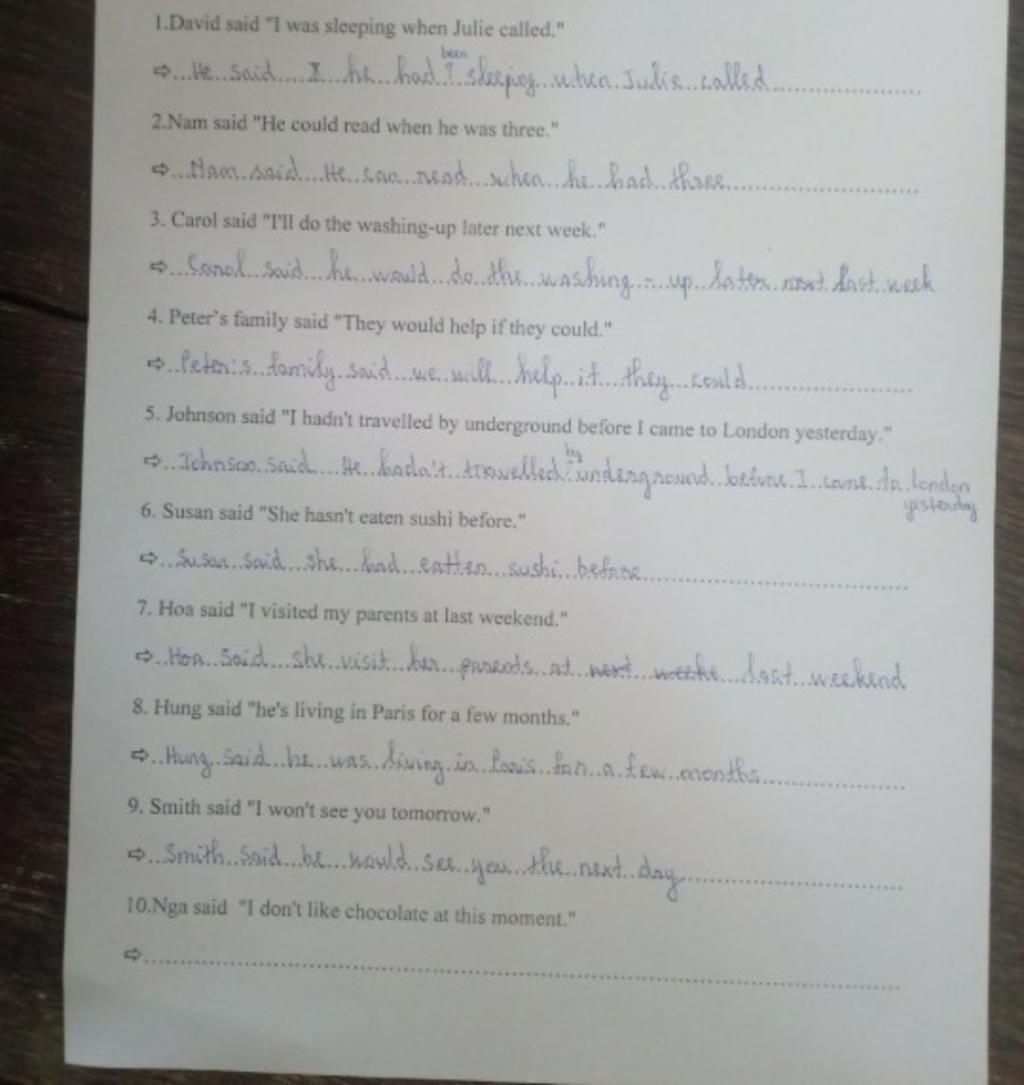 1.David said "I was sleeping when Julie called."
been
⇨...He said I he had ? sleeping when Julie called
2.Nam said "He could read when he was three."
⇨...Nam said He can read when he had three
3. Carol said "I'll do the washing-up later next week."
⇨...Carol said he would do the washing - up later next last week
4. Peter's family said "They would help if they could."
⇨...Peter's family said we will help if they could
5. Johnson said "I hadn't travelled by underground before I came to London yesterday."
by
⇨...Johnson said He hadn't travelled underground before I came to london
yesterday
6. Susan said "She hasn't eaten sushi before."
⇨...Susan said she had eatten sushi before
7. Hoa said "I visited my parents at last weekend."
⇨...Hoa said she visit her parents at next weeke last weekend
8. Hung said "he's living in Paris for a few months."
⇨...Hung said he was living in Paris for a few months
9. Smith said "I won't see you tomorrow."
⇨...Smith said he would see you the next day
10.Nga said "I don't like chocolate at this moment."
⇨